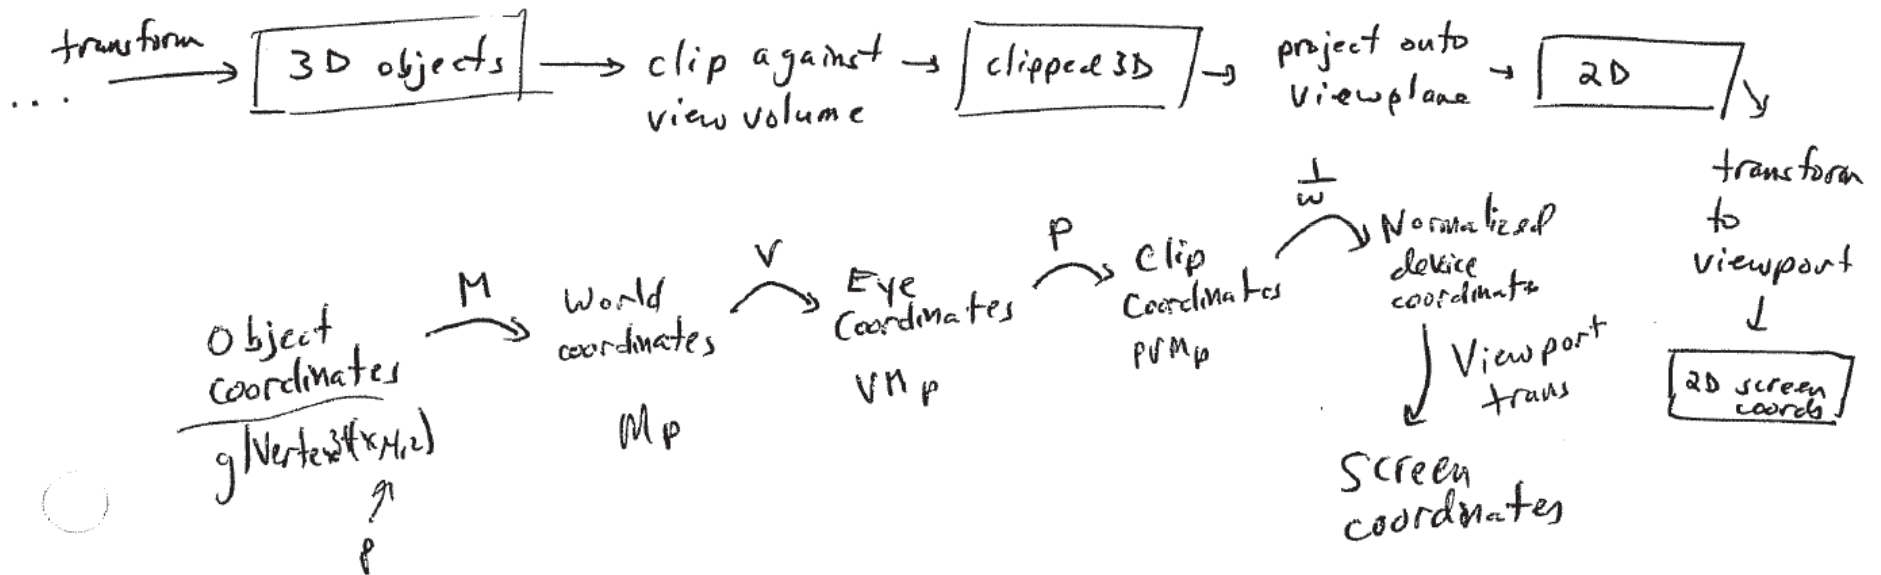 transform
....
3D objects
clip against
view volume
clipped 3D
project onto
viewplane
2D
transform
to
viewport
2D screen
coords
Object
coordinates
glVertex3f(x,y,z)
p
M
World
coordinates
Mp
V
Eye
Coordinates
VMp
P
Clip
Coordinates
PVMp
1
w
Normalized
device
coordinates
Viewport
trans
Screen
coordinates